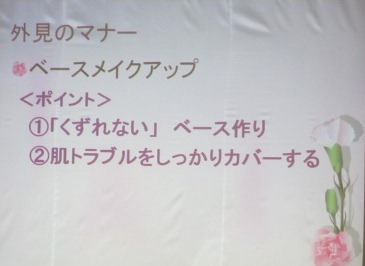 外見のマナー
ベースメイクアップ
＜ポイント＞
①「くずれない」 ベース作り
②肌トラブルをしっかりカバーする